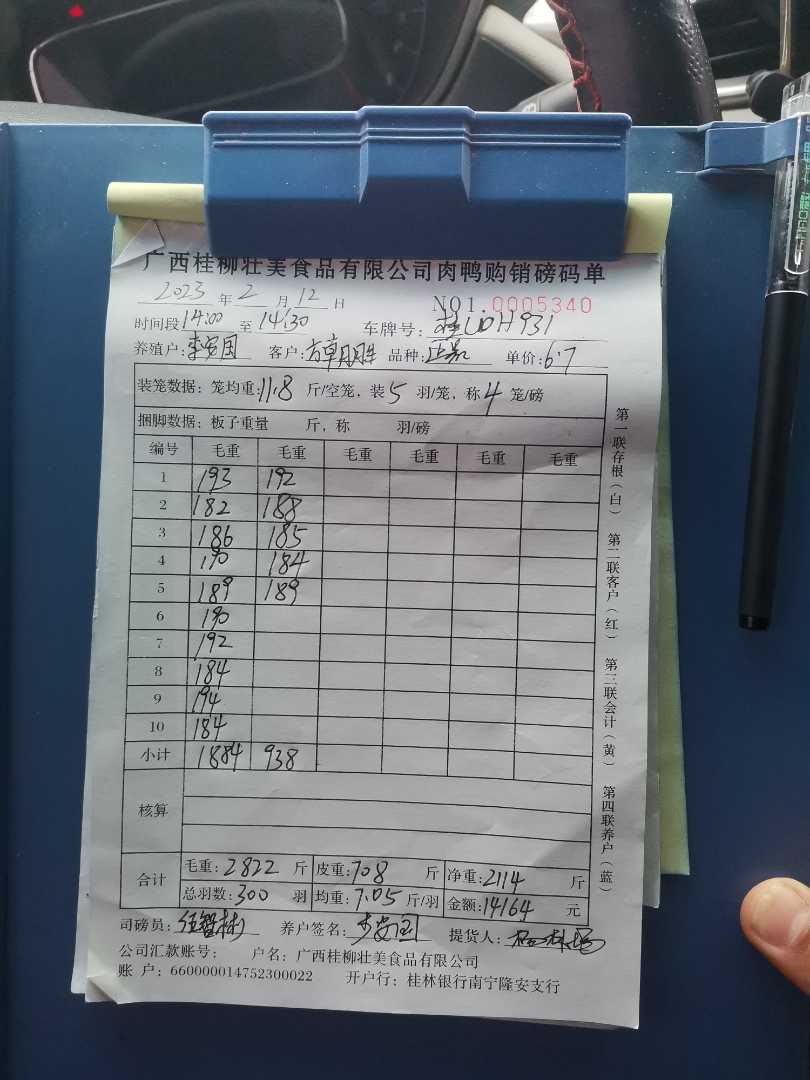 广西桂柳壮美食品有限公司肉鸭购销磅码单
2023年2月12日 NO1.0005340
时间段14:00至14:30 车牌号:桂UDH931
养殖户:李安国 客户: 品种: 单价:6.7
装笼数据:笼均重:11.8斤/空笼,装5羽/笼,称4笼/磅
捆脚数据:板子重量 斤,称 羽/磅
编号 毛重 毛重 毛重 毛重 毛重 毛重
1 193 192
2 182 188
3 186 185
4 190 184
5 189 189
6 190
7 192
8 184
9 194
10 184
小计 1884 938
核算
合计 毛重:2822斤 皮重:708斤 净重:2114斤
总羽数:300羽 均重:7.05斤/羽 金额:14164元
司磅员: 养户签名:李安国 提货人:
公司汇款账号: 户名:广西桂柳壮美食品有限公司
账 户:660000014752300022 开户行:桂林银行南宁隆安支行
第一联存根(白) 第二联客户(红) 第三联会计(黄) 第四联养户(蓝)